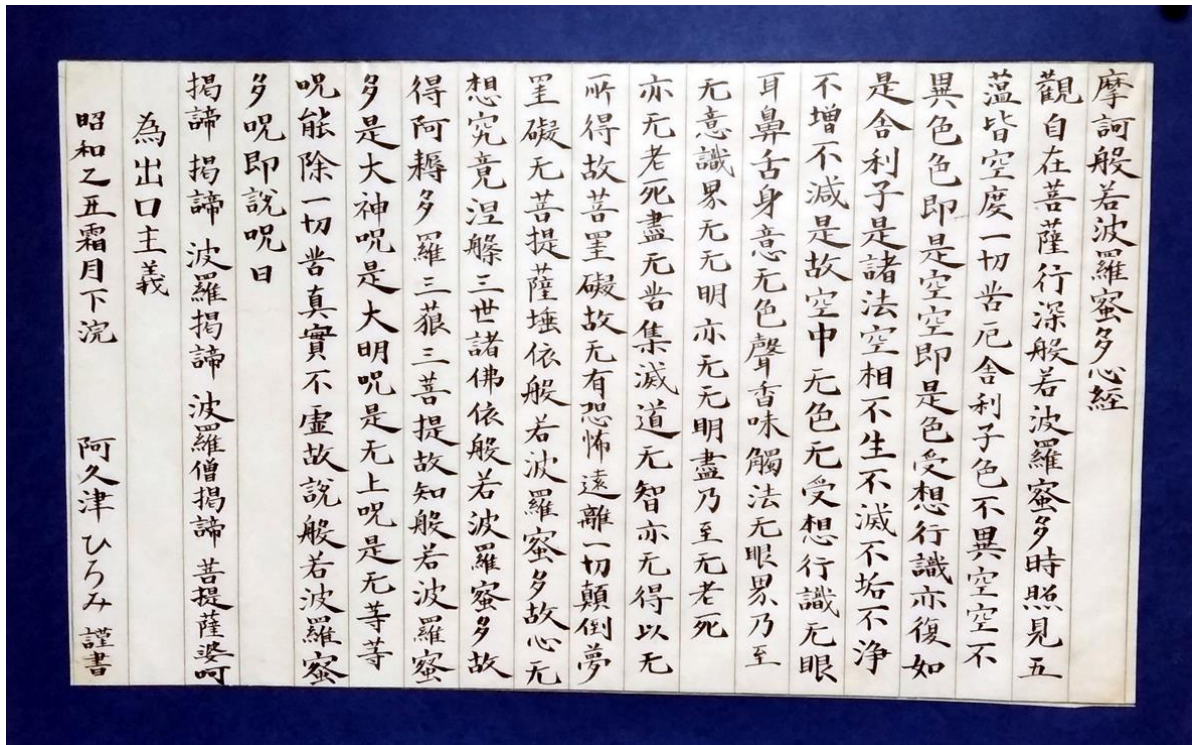 摩訶般若波羅蜜多心経
觀自在菩薩行深般若波羅蜜多時照見五
薀皆空度一切苦厄舎利子色不異空空不
異色色即是空空即是色受想行識亦復如
是舎利子是諸法空相不生不滅不垢不浄
不増不減是故空中无色无受想行識无眼
耳鼻舌身意无色聲香味觸法无眼界乃至
无意識界无无明亦无无明盡乃至无老死
亦无老死盡无苦集滅道无智亦无得以无
所得故菩罣礙故无有恐怖遠離一切顛倒夢
罣礙无菩提薩埵依般若波羅蜜多故心无
想究竟涅槃三世諸佛依般若波羅蜜多故
得阿耨多羅三藐三菩提故知般若波羅蜜
多是大神呪是大明呪是无上呪是无等等
呪能除一切苦真實不虚故説般若波羅蜜
多呪即説呪曰
揭諦 揭諦 波羅揭諦 波羅僧揭諦 菩提薩婆呵
為出口主義
昭和乙丑霜月下浣 阿久津ひろみ 謹書